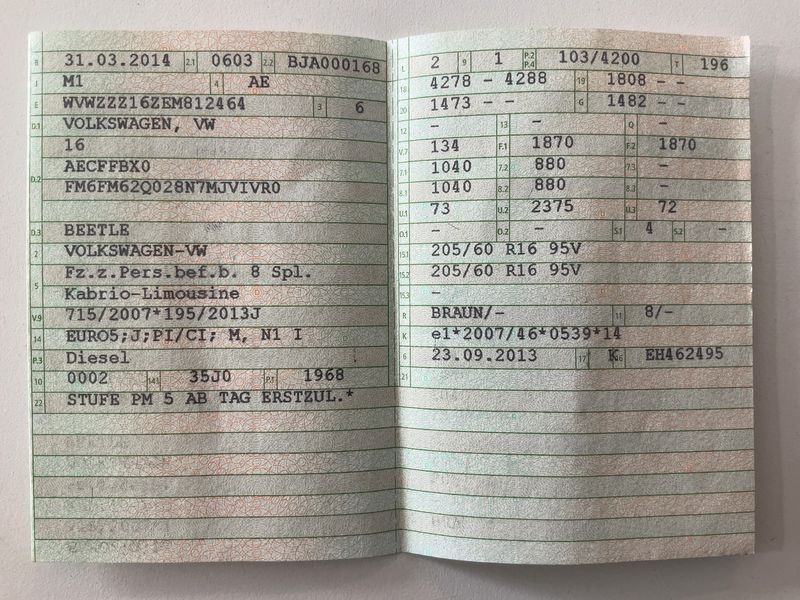 B 31.03.2014 2.1 0603 2.2 BJA000168
J M1 4 AE
E WVWZZZ16ZEM812464 3 6
D.1 VOLKSWAGEN, VW
16
D.2 AECFFBX0
FM6FM62Q028N7MJVIVR0
D.3 BEETLE
2 VOLKSWAGEN-VW
5 Fz.z.Pers.bef.b. 8 Spl.
Kabrio-Limousine
V.9 715/2007*195/2013J
14 EURO5;J;PI/CI; M, N1 I
P.3 Diesel
10 0002 14.1 35J0 P.1 1968
22 STUFE PM 5 AB TAG ERSTZUL.*
L 2 9 1 P.2 P.4 103/4200 T 196
18 4278 - 4288 19 1808 - -
20 1473 - - G 1482 - -
12 - 13 - Q -
V.7 134 F.1 1870 F.2 1870
7.1 1040 7.2 880 7.3 -
8.1 1040 8.2 880 8.3 -
U.1 73 U.2 2375 U.3 72
O.1 - O.2 - S.1 4 S.2 -
15.1 205/60 R16 95V
15.2 205/60 R16 95V
15.3 -
R BRAUN/- 11 8/-
K e1*2007/46*0539*14
6 23.09.2013 17 K 16 EH462495
21